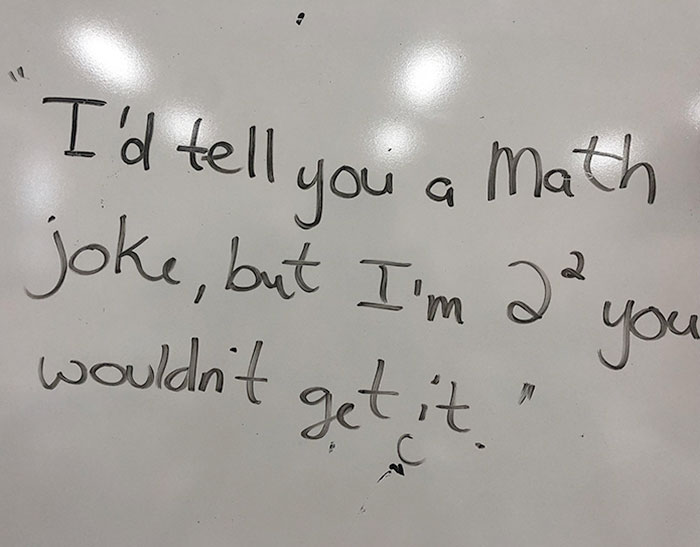 "I'd tell you a Math
joke, but I'm 2² you
wouldn't get it."